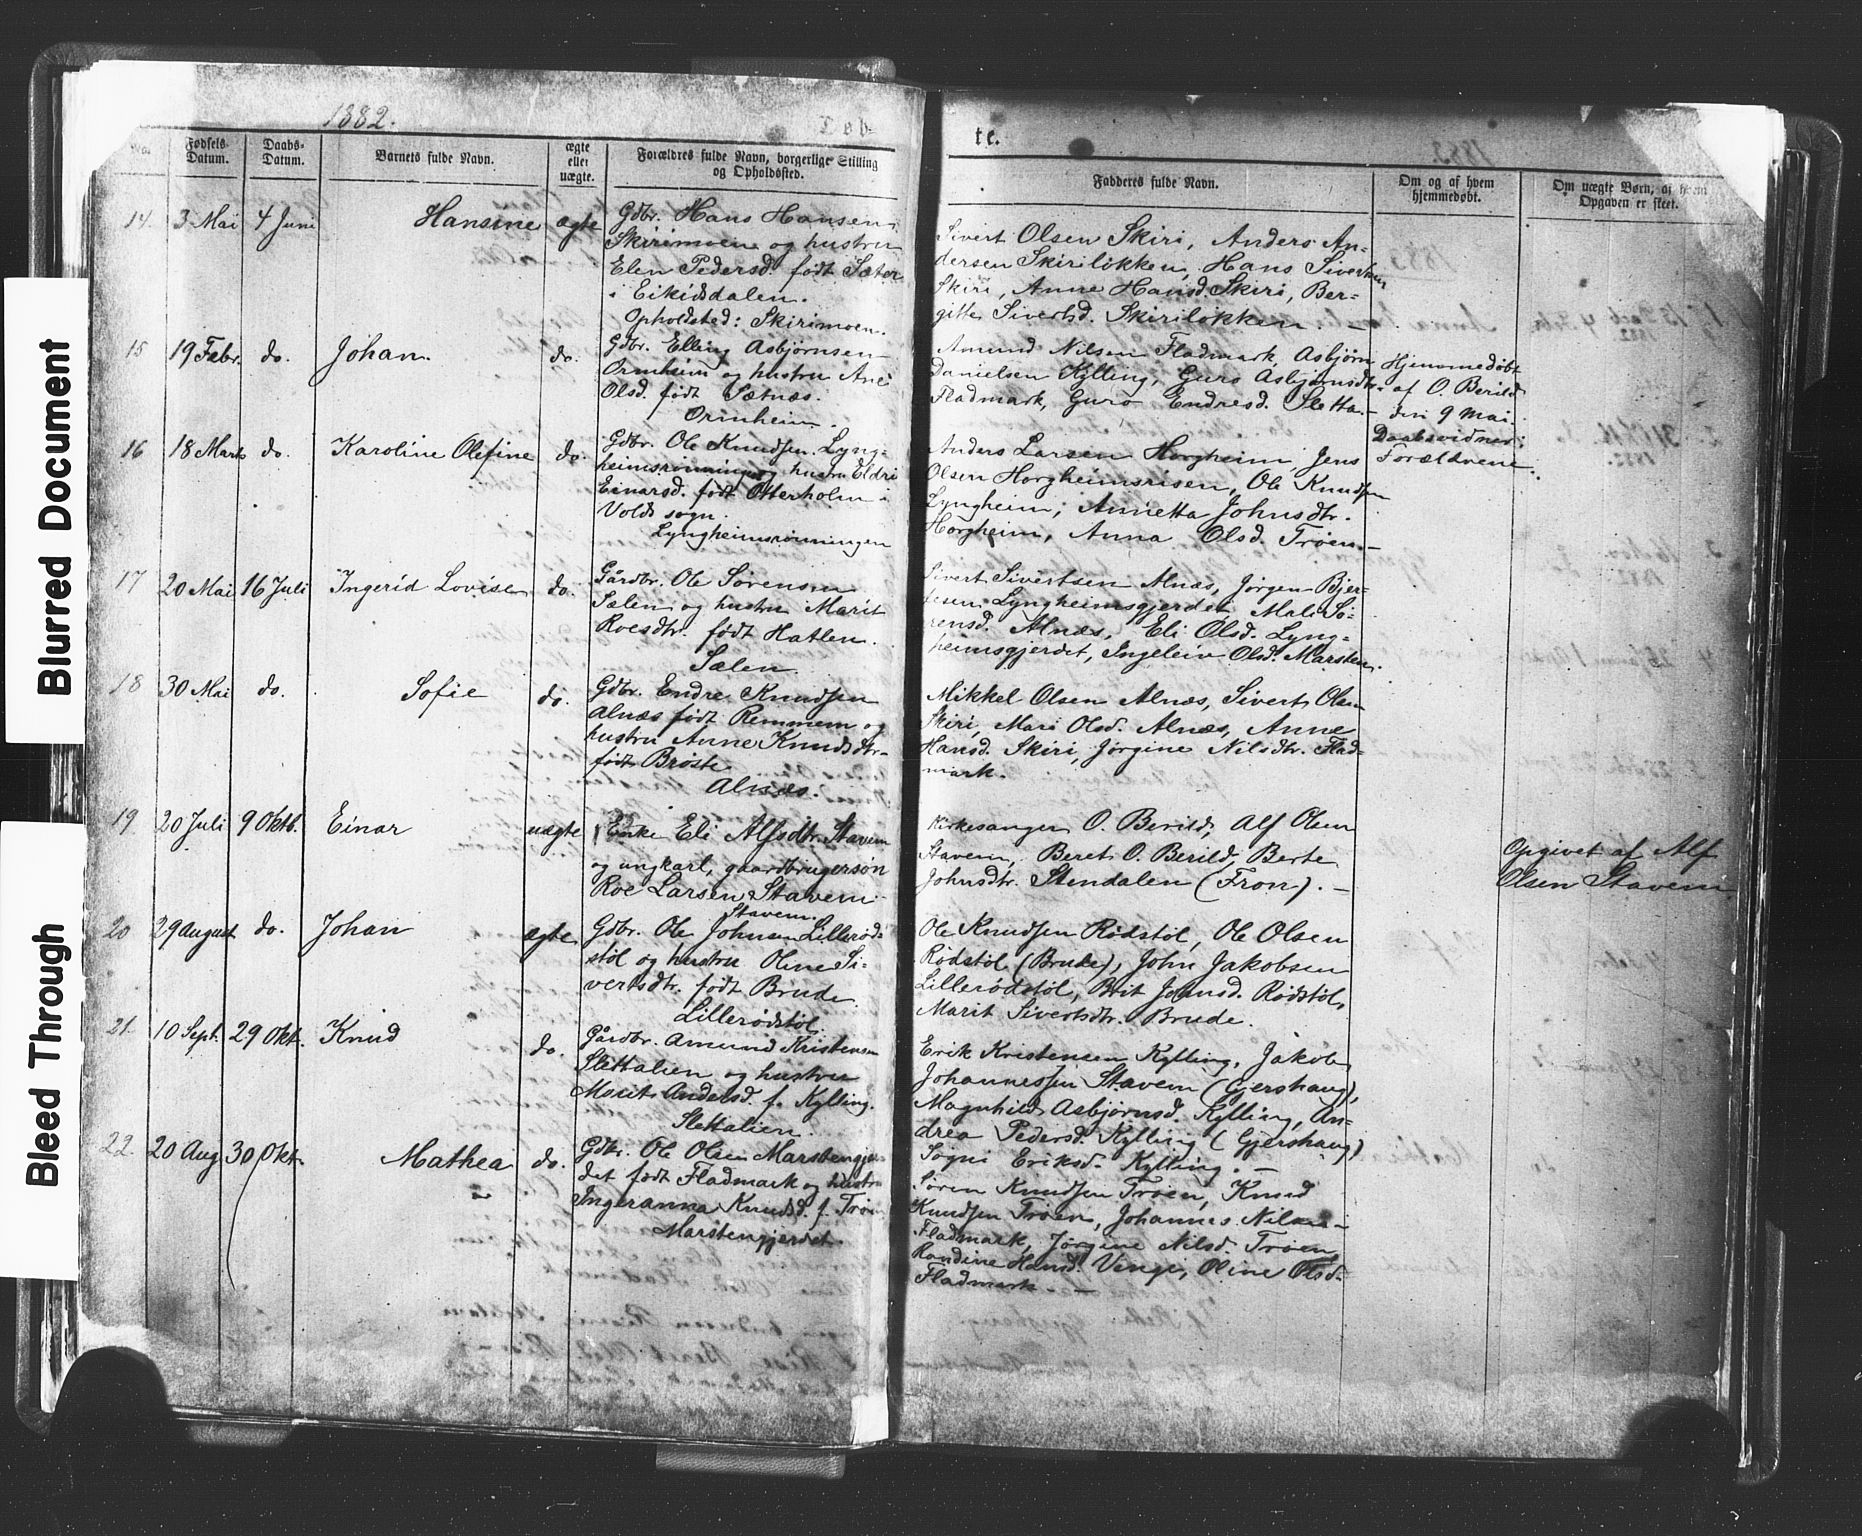 Blurred Document
Bleed Through
1882.
Døb-
te.
No.
Fødsels-
Datum.
Daabs-
Datum.
Barnets fulde Navn.
ægte
eller
uægte.
Forældres fulde Navn, borgerlige Stilling
og Opholdsted.
Fadderes fulde Navn.
Om og af hvem
hjemmedøbt.
Om uægte Børn, af hvem
Opgaven er skeet.
14 3 Mai 4 Juni Hansine ægte
Gdbr. Hans Hansen
Skirimoen og hustru
Elen Pedersd. født Sæter
i Eikisdalen.
Opholdsted: Skirimoen.
Sivert Olsen Skiri, Anders An-
dersen Skiriløkken, Hans Sivertsen
Skiri, Anne Hansd. Skiri, Ber-
gitte Sivertsd. Skiriløkken. —
15 19 Febr. do. Johan. do.
Gdbr. Elling Asbjørnsen
Ormheim og hustru Ane
Olsd. født Sætnæs.
Ormheim.
Amund Nilsen Fladmark, Asbjørn
Danielsen Kylling, Guro Asbjørnsdtr.
Fladmark, Guro Endresd. Sletta. —
Hjemmedøbt
af O. Berild
den 9 Mai.
Daabsvidner:
Forældrene.
16 18 Marts do. Karoline Olefine do.
Gdbr. Ole Knudsen Lyng-
heimsrønningen og hustru Eldri
Einarsd. født Otterholm i
Volds sogn.
Lyngheimsrønningen
Anders Larsen Horgheim, Jens
Olsen Horgheimsrisen, Ole Knudsen
Lyngheim, Annetta Johnsdtr.
Horgheim, Anna Olsd. Trøen. —
17 20 Mai 16 Juli Ingerid Lovise do.
Gårdbr. Ole Sørensen
Sælen og hustru Marit
Roesdtr. født Hatlen.
Sælen
Sivert Sivertsen Alnæs, Jørgen Bjer-
kesen Lyngheimsgjerdet, Mali Sø-
rensd. Alnæs, Eli Olsd. Lyng-
heimsgjerdet, Ingeleiv Olsd. Marsten.
18 30 Mai do. Sofie do.
Gdbr. Endre Knudsen
Alnæs født Remmem og
hustru Anne Knudsdtr.
født Brøste
Alnæs.
Mikkel Olsen Alnæs, Sivert Olsen
Skiri, Mari Olsd. Alnæs, Anne
Hansd. Skiri, Jørgine Nilsdtr. Flad-
mark.
19 20 Juli 9 Oktb. Einar uægte
Enke Eli Alfsdtr. Stavem
og ungkarl, gaardbrugersøn
Roe Larsen Stavem
Stavem.
Kirkesanger O. Berild, Alf Olsen
Stavem, Beret O. Berild, Berte
Johnsdtr. Stendalen (Fron). —
Opgivet af Alf
Olsen Stavem
20 29 August do. Johan ægte
Gdbr. Ole Johnsen Lillerød-
støl og hustru Oline Si-
vertsdtr. født Brude.
Lillerødstøl.
Ole Knudsen Rødstøl, Ole Olsen
Rødstøl (Brude), John Jakobsen
Lillerødstøl, Brit Johnsd. Rødstøl,
Marit Sivertsdtr. Brude.
21. 10 Sept. 29 Okt. Knud do.
Gårdbr. Amund Kristensen
Slettalien og hustru
Marit Andersd. f. Kylling.
Slettalien.
Erik Kristensen Kylling, Jakob
Johannessen Stavem (Gjershaug),
Magnhild Asbjørnsd. Kylling, An-
drea Pedersd. Kylling (Gjershaug)
Sogni Eriksd. Kylling. —
22. 20 Aug. 30 Okt. Mathea do.
Gdbr. Ole Olsen Marstengjer-
det født Fladmark og hustru
Ingeranna Knudsd. f. Trøen
Marstengjerdet
Søren Knudsen Trøen, Knud
Knudsen Trøen, Johannes Nilsen
Fladmark, Jørgine Nilsd. Trøen,
Randine Hansd. Venge, Oline Olsd.
Fladmark. —